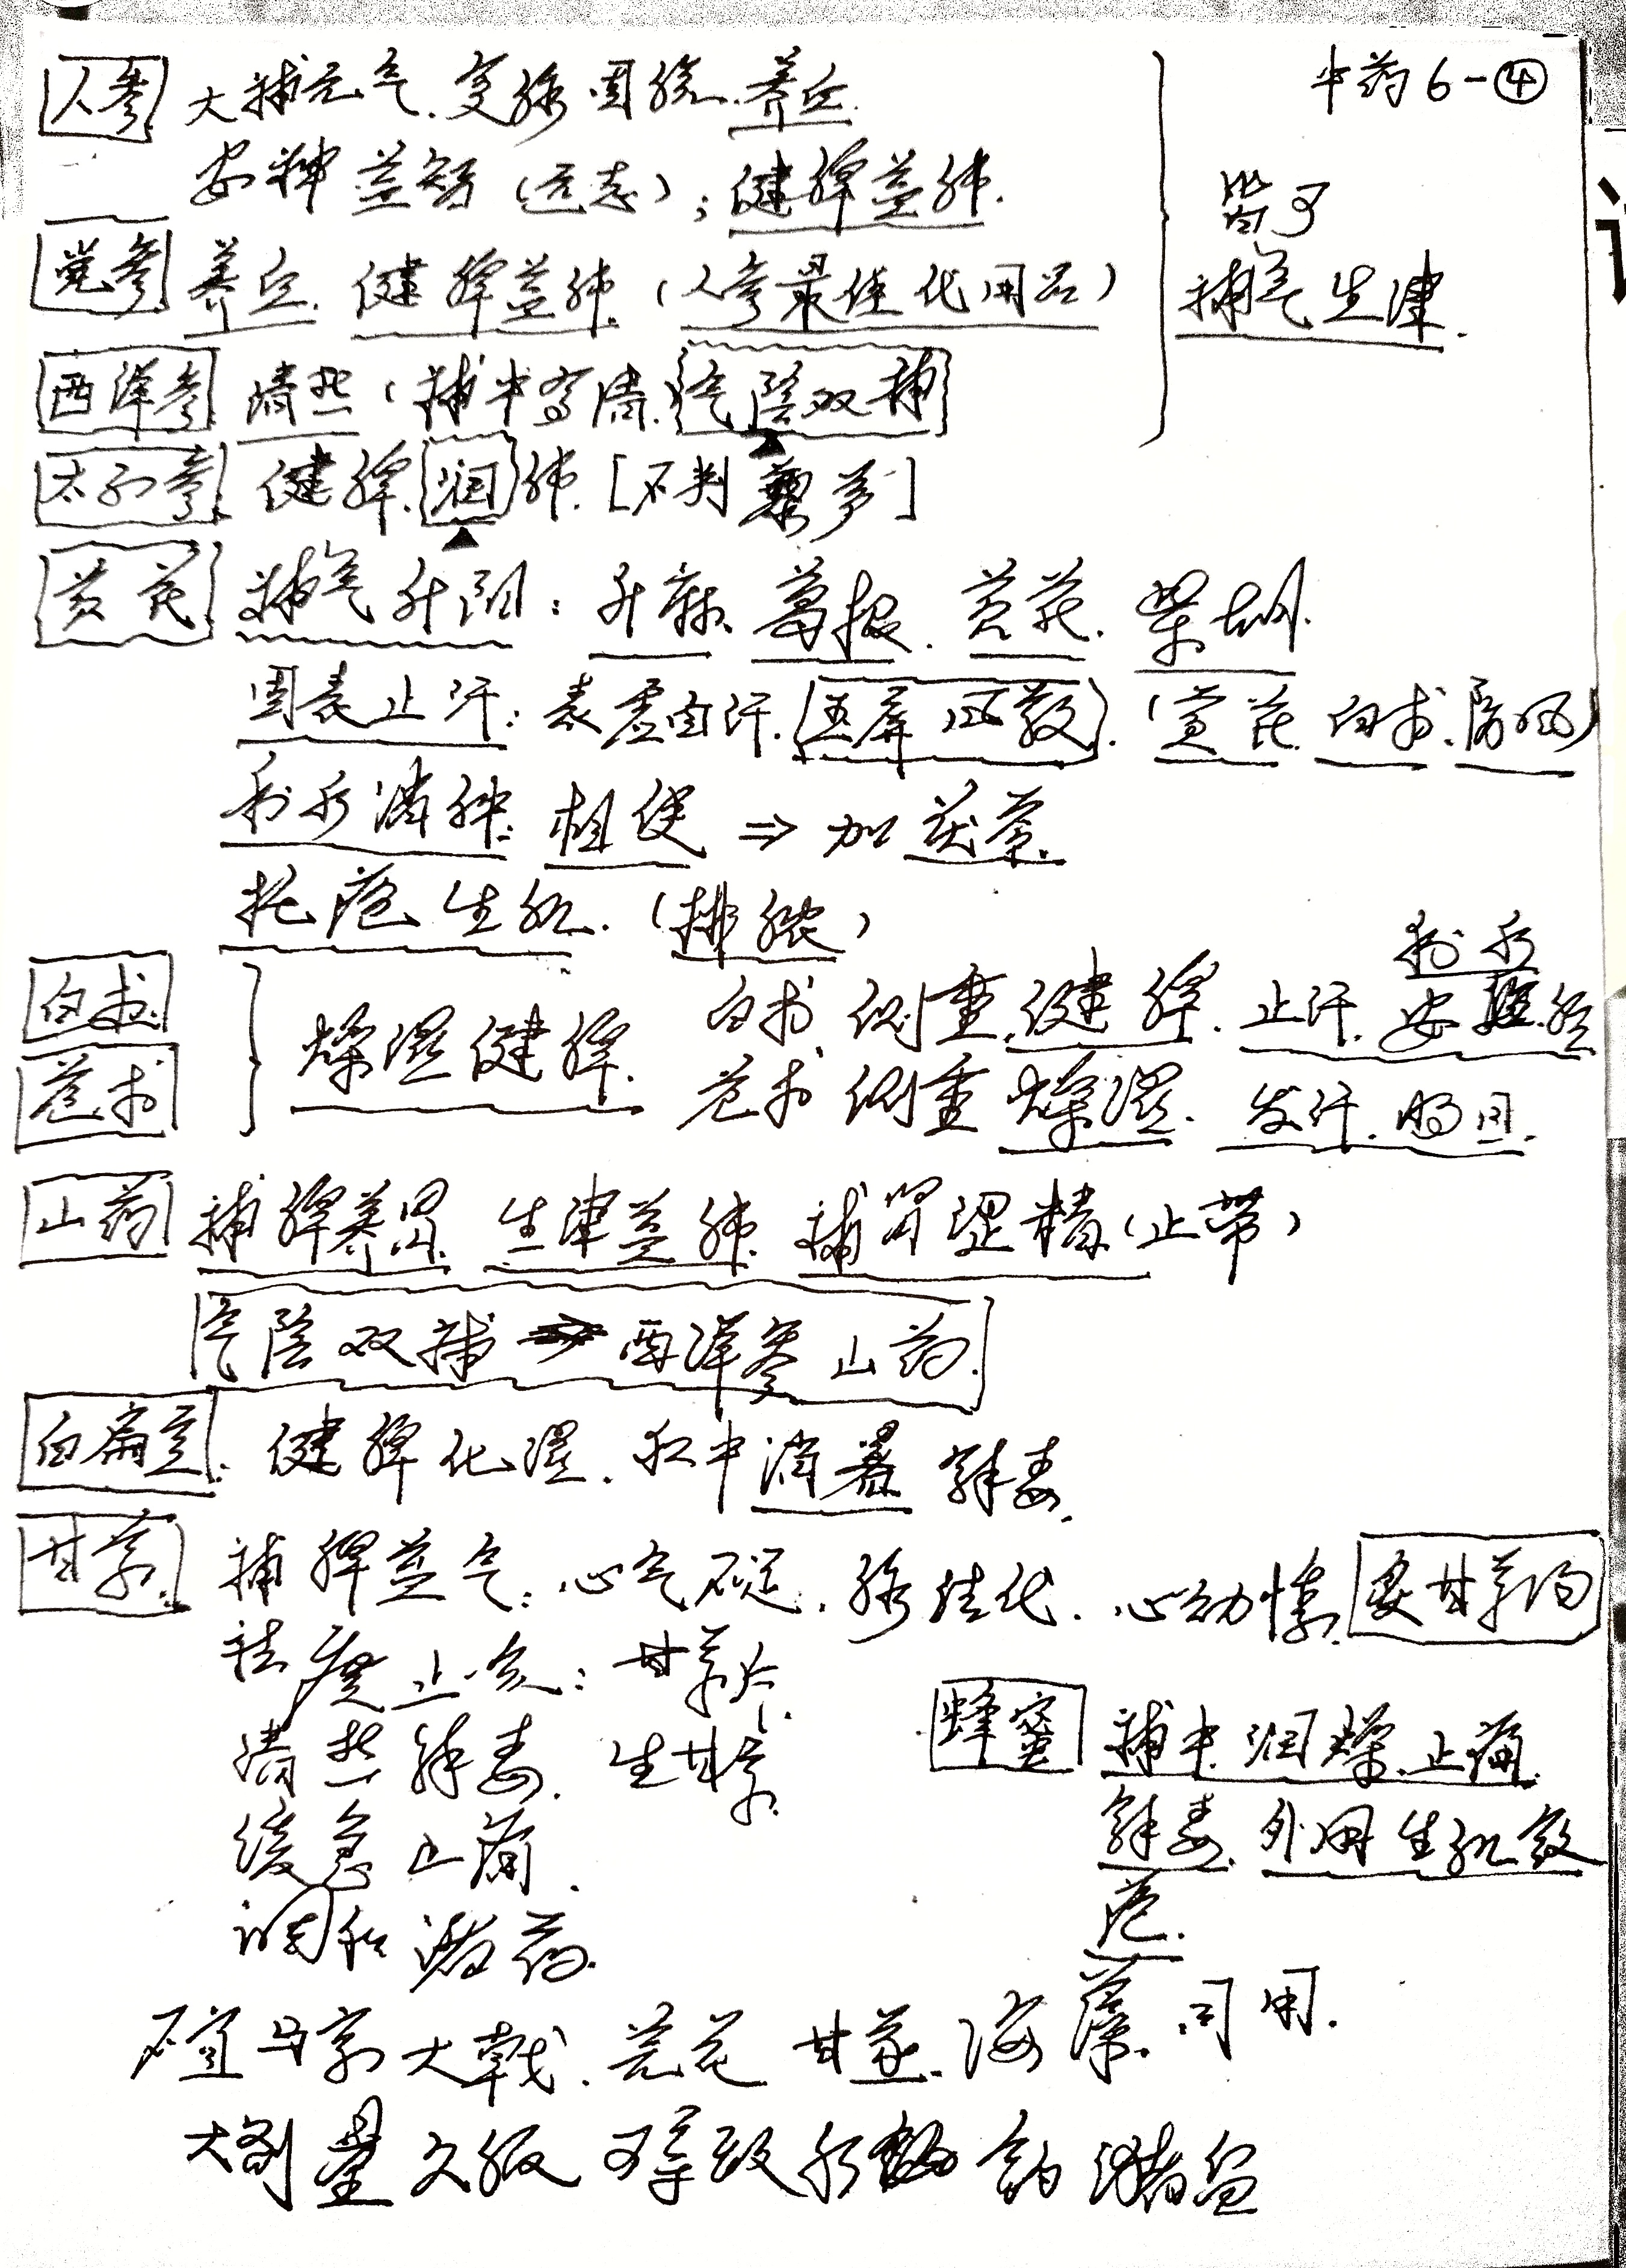 中药6-④
人参 大补元气.复脉固脱.养血.
安神益智(远志);健脾益肺.
党参 养血.健脾益肺.(人参最佳代用品)
皆可
补气生津.
西洋参 清热(补中寓清.)气阴双补
太子参 健脾.润肺.[不判藜芦]
黄芪 补气升阳:升麻.葛根.黄芪.柴胡.
固表止汗:表虚自汗.玉屏风散.(黄芪.白术.防风)
利水消肿:相使⇒加茯苓.
托疮生肌.(排脓)
利水
白术 燥湿健脾. 白术侧重.健脾.止汗.安胎
苍术 苍术侧重燥湿.发汗.明目.
山药 补脾养胃.生津益肺.补肾涩精(止带)
气阴双补 西洋参 山药.
白扁豆.健脾化湿.和中消暑 解毒.
甘草.补脾益气:心气不足.脉结代.心动悸.炙甘草汤
祛痰止咳:甘草片.
清热解毒.生甘草.
蜂蜜 补中.润燥.止痛.
缓急止痛.
解毒.外用生肌敛
疮.
调和诸药.
不宜与京大戟.芫花 甘遂.海藻.同用.
大剂量久服可导致水钠潴留